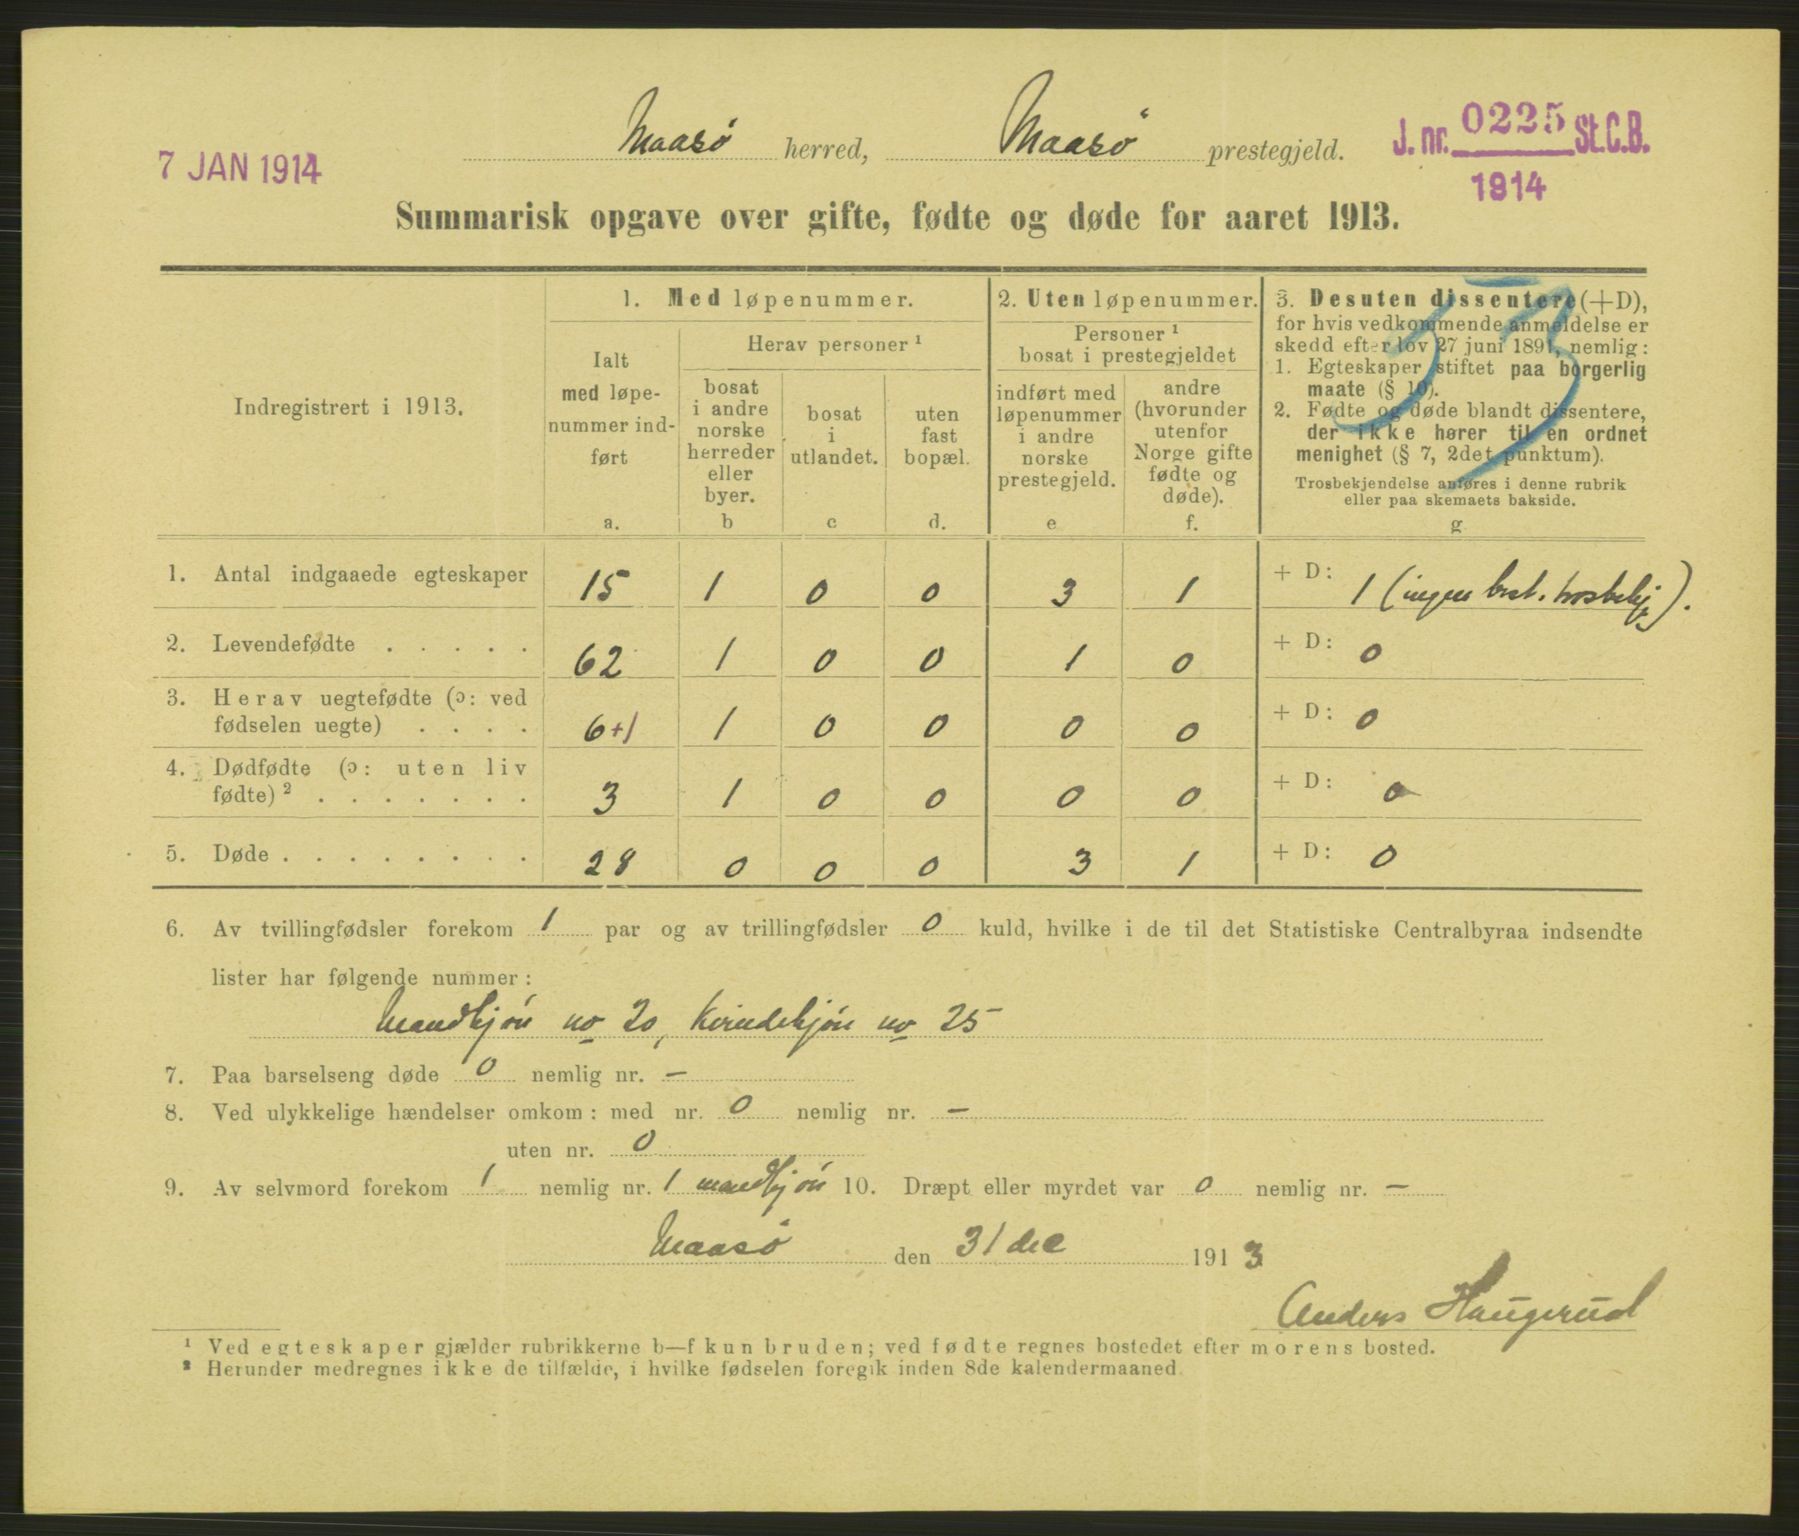 Maasø herred, Maasø prestegjeld.
7 JAN 1914
J. nr. 0225 St.C.B.
1914
Summarisk opgave over gifte, fødte og døde for aaret 1913.
Indregistrert i 1913.
1. Med løpenummer.
Ialt
med løpe-
nummer ind-
ført
a.
Herav personer ¹
bosat
i andre
norske
herreder
eller
byer.
b
bosat
i
utlandet.
c
uten
fast
bopæl.
d.
2. Uten løpenummer.
Personer ¹
bosat i prestegjeldet
indført med
løpenummer
i andre
norske
prestegjeld.
e
andre
(hvorunder
utenfor
Norge gifte
fødte og
døde).
f.
3. Desuten dissentere (+D),
for hvis vedkommende anmeldelse er
skedd efter lov 27 juni 1891, nemlig:
1. Egteskaper stiftet paa borgerlig
maate (§ 10).
2. Fødte og døde blandt dissentere,
der ikke hører til en ordnet
menighet (§ 7, 2det punktum).
Trosbekjendelse anføres i denne rubrik
eller paa skemaets bakside.
g
53
1. Antal indgaaede egteskaper 15 1 0 0 3 1 + D: 1 (ingen best. trosbekj).
2. Levendefødte . . . . . 62 1 0 0 1 0 + D: 0
3. Herav uegtefødte (ɔ: ved
fødselen uegte) . . . . 6+1 1 0 0 0 0 + D: 0
4. Dødfødte (ɔ: uten liv
fødte) ² . . . . . . . 3 1 0 0 0 0 + D: 0
5. Døde . . . . . . . . 28 0 0 0 3 1 + D: 0
6. Av tvillingfødsler forekom 1 par og av trillingfødsler 0 kuld, hvilke i de til det Statistiske Centralbyraa indsendte
lister har følgende nummer:
Mandkjøn no 20, Kvindekjøn no 25
7. Paa barselseng døde 0 nemlig nr. –
8. Ved ulykkelige hændelser omkom: med nr. 0 nemlig nr. –
uten nr. 0
9. Av selvmord forekom 1 nemlig nr. 1 mandkjøn 10. Dræpt eller myrdet var 0 nemlig nr. –
Maasø den 31 dec 1913
Anders Haugerud
¹ Ved egteskaper gjælder rubrikkerne b—f kun bruden; ved fødte regnes bostedet efter morens bosted.
² Herunder medregnes ikke de tilfælde, i hvilke fødselen foregik inden 8de kalendermaaned.